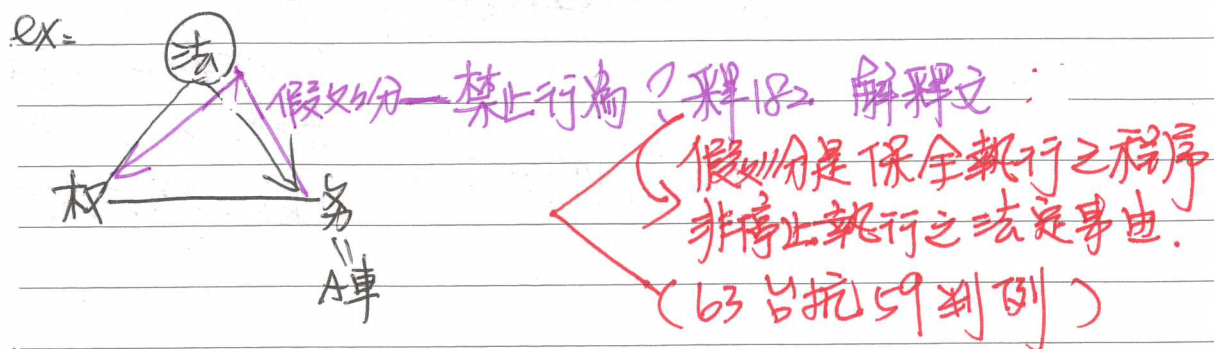 ex:
法
假処分—禁止行為？釋182 解釋文：
假処分是保全執行之程序
非停止執行之法定事由.
权 务
A車
(63台抗59判例)